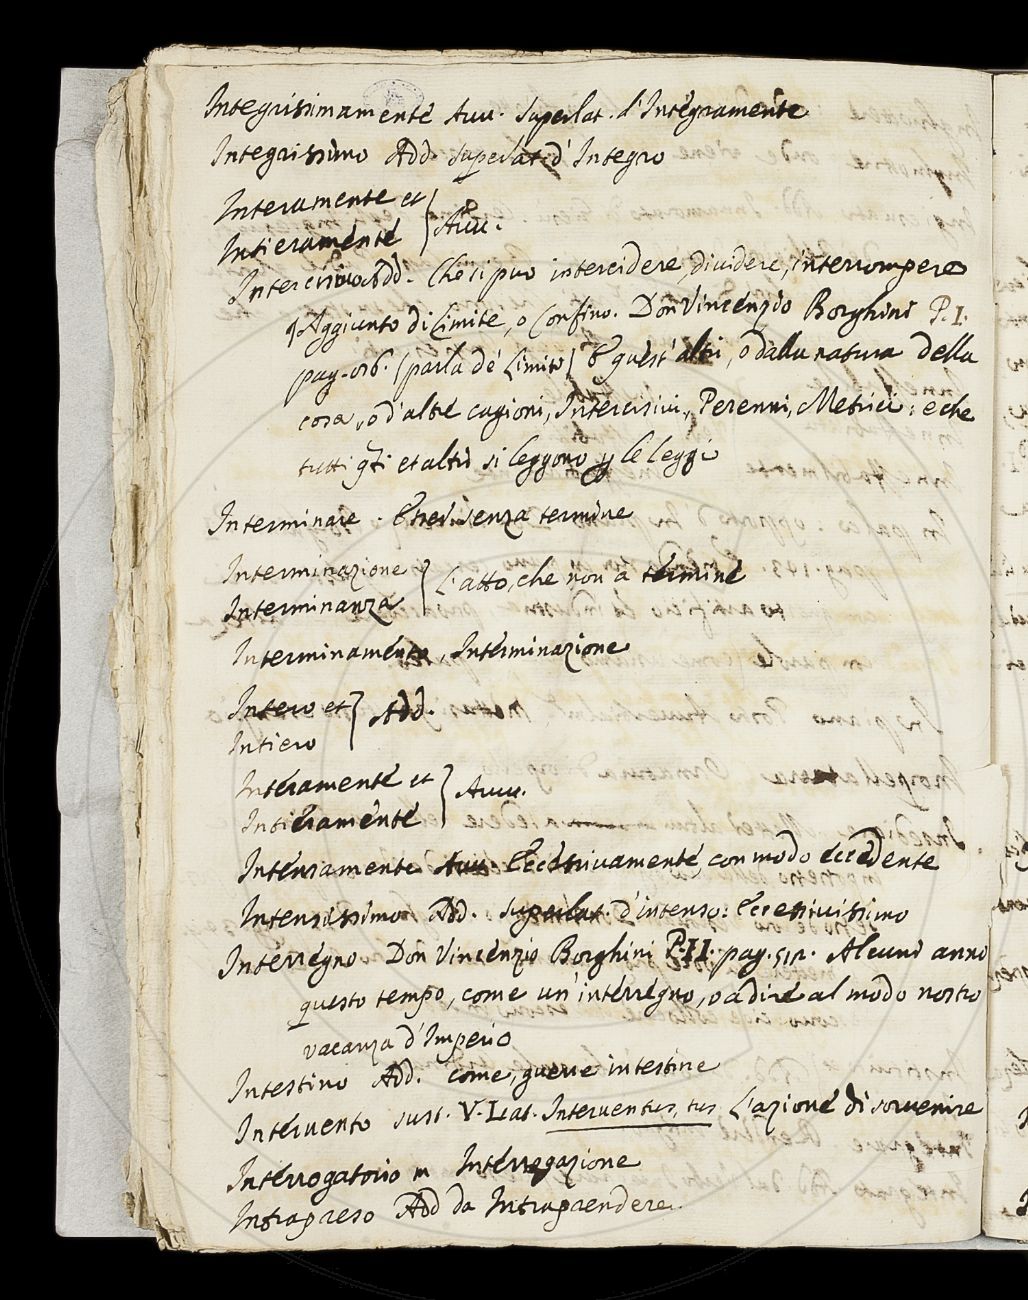 Integrissimamente Auu. Superlat. d'Integramente
Integrissimo Add. Superlat. d'Integro
Interamente et
Intieramente } Auu.
Intercisivo Add. Che si può intercidere, dividere, interrompere
¶ Aggiunto di Limite, o Confino. Don Vincenzio Borghini P. I.
pag. (parla dè Limiti) E quest'altri, o dalla natura della
cosa, o d'altre cagioni, Intercisivi, Perenni, Metrici: e che
tutti q̃ti et altri si leggono y le leggi
Interminare. senza termine
Interminazione
Interminanza } L'atto, che non à termine
Interminamento, Interminazione
Intero et
Intiero } Add.
Interamente et
Intieramente } Auu.
Intensamente Auu. Eccessivamente, con modo eccedente
Intensissimo Add. Superlat. d'intenso: Eccessivissimo
Interregno. Don Vincenzio Borghini P. II. pag. 512. Alcuni anno
questo tempo, come un'interregno, o a dire al modo nostro
vacanza d'Imperio
Intestino Add. come, guerre intestine
Intervento sust. V. Lat. Interventus, tus L'azione di sovvenire
Interrogatorio m Interrogazione
Intrapreso Add da Intraprendere.